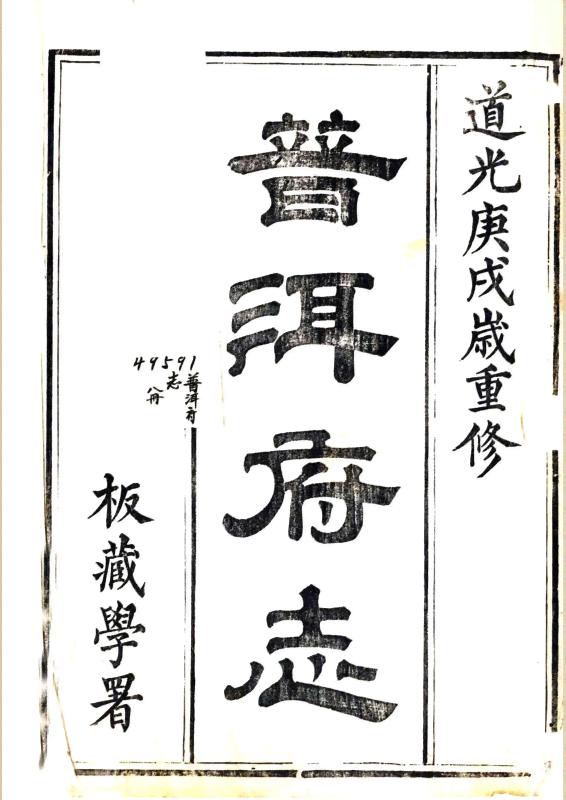 道光庚戌歲重修
普洱府志
49591
普洱府
志
八冊
板藏學署